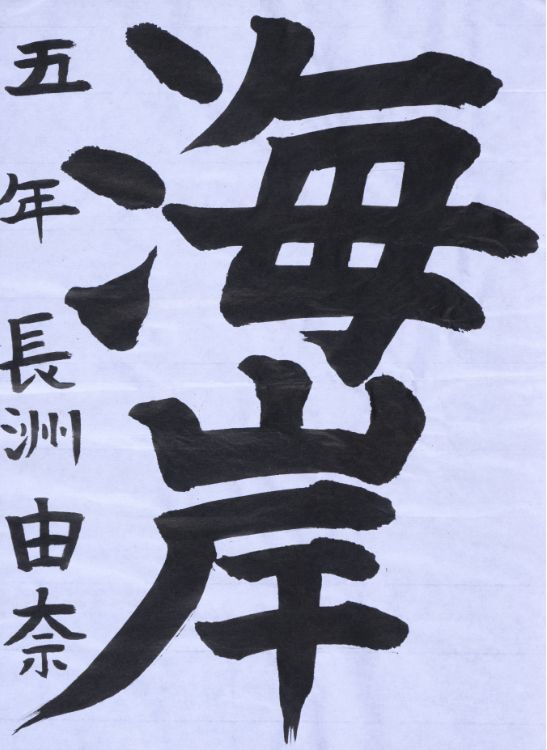 海岸
五年長洲由奈